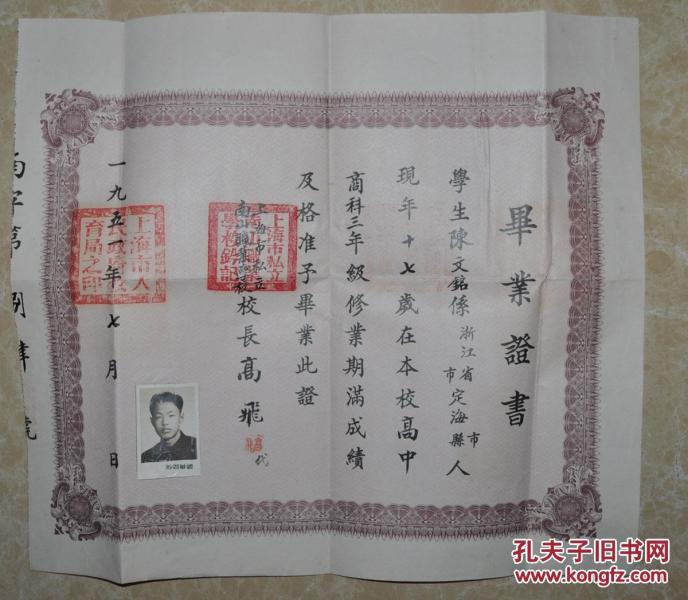 畢業證書
學生陳文銘係浙江省市定海縣市人
現年十七歲在本校高中
商科三年級修業期滿成績
及格准予畢業此證
上海市私立
校長高飛代
一九五一年七月 日
上海市人
育局之印
上海市私立
南字第 捌 肆 號
孔夫子旧书网
www.kongfz.com